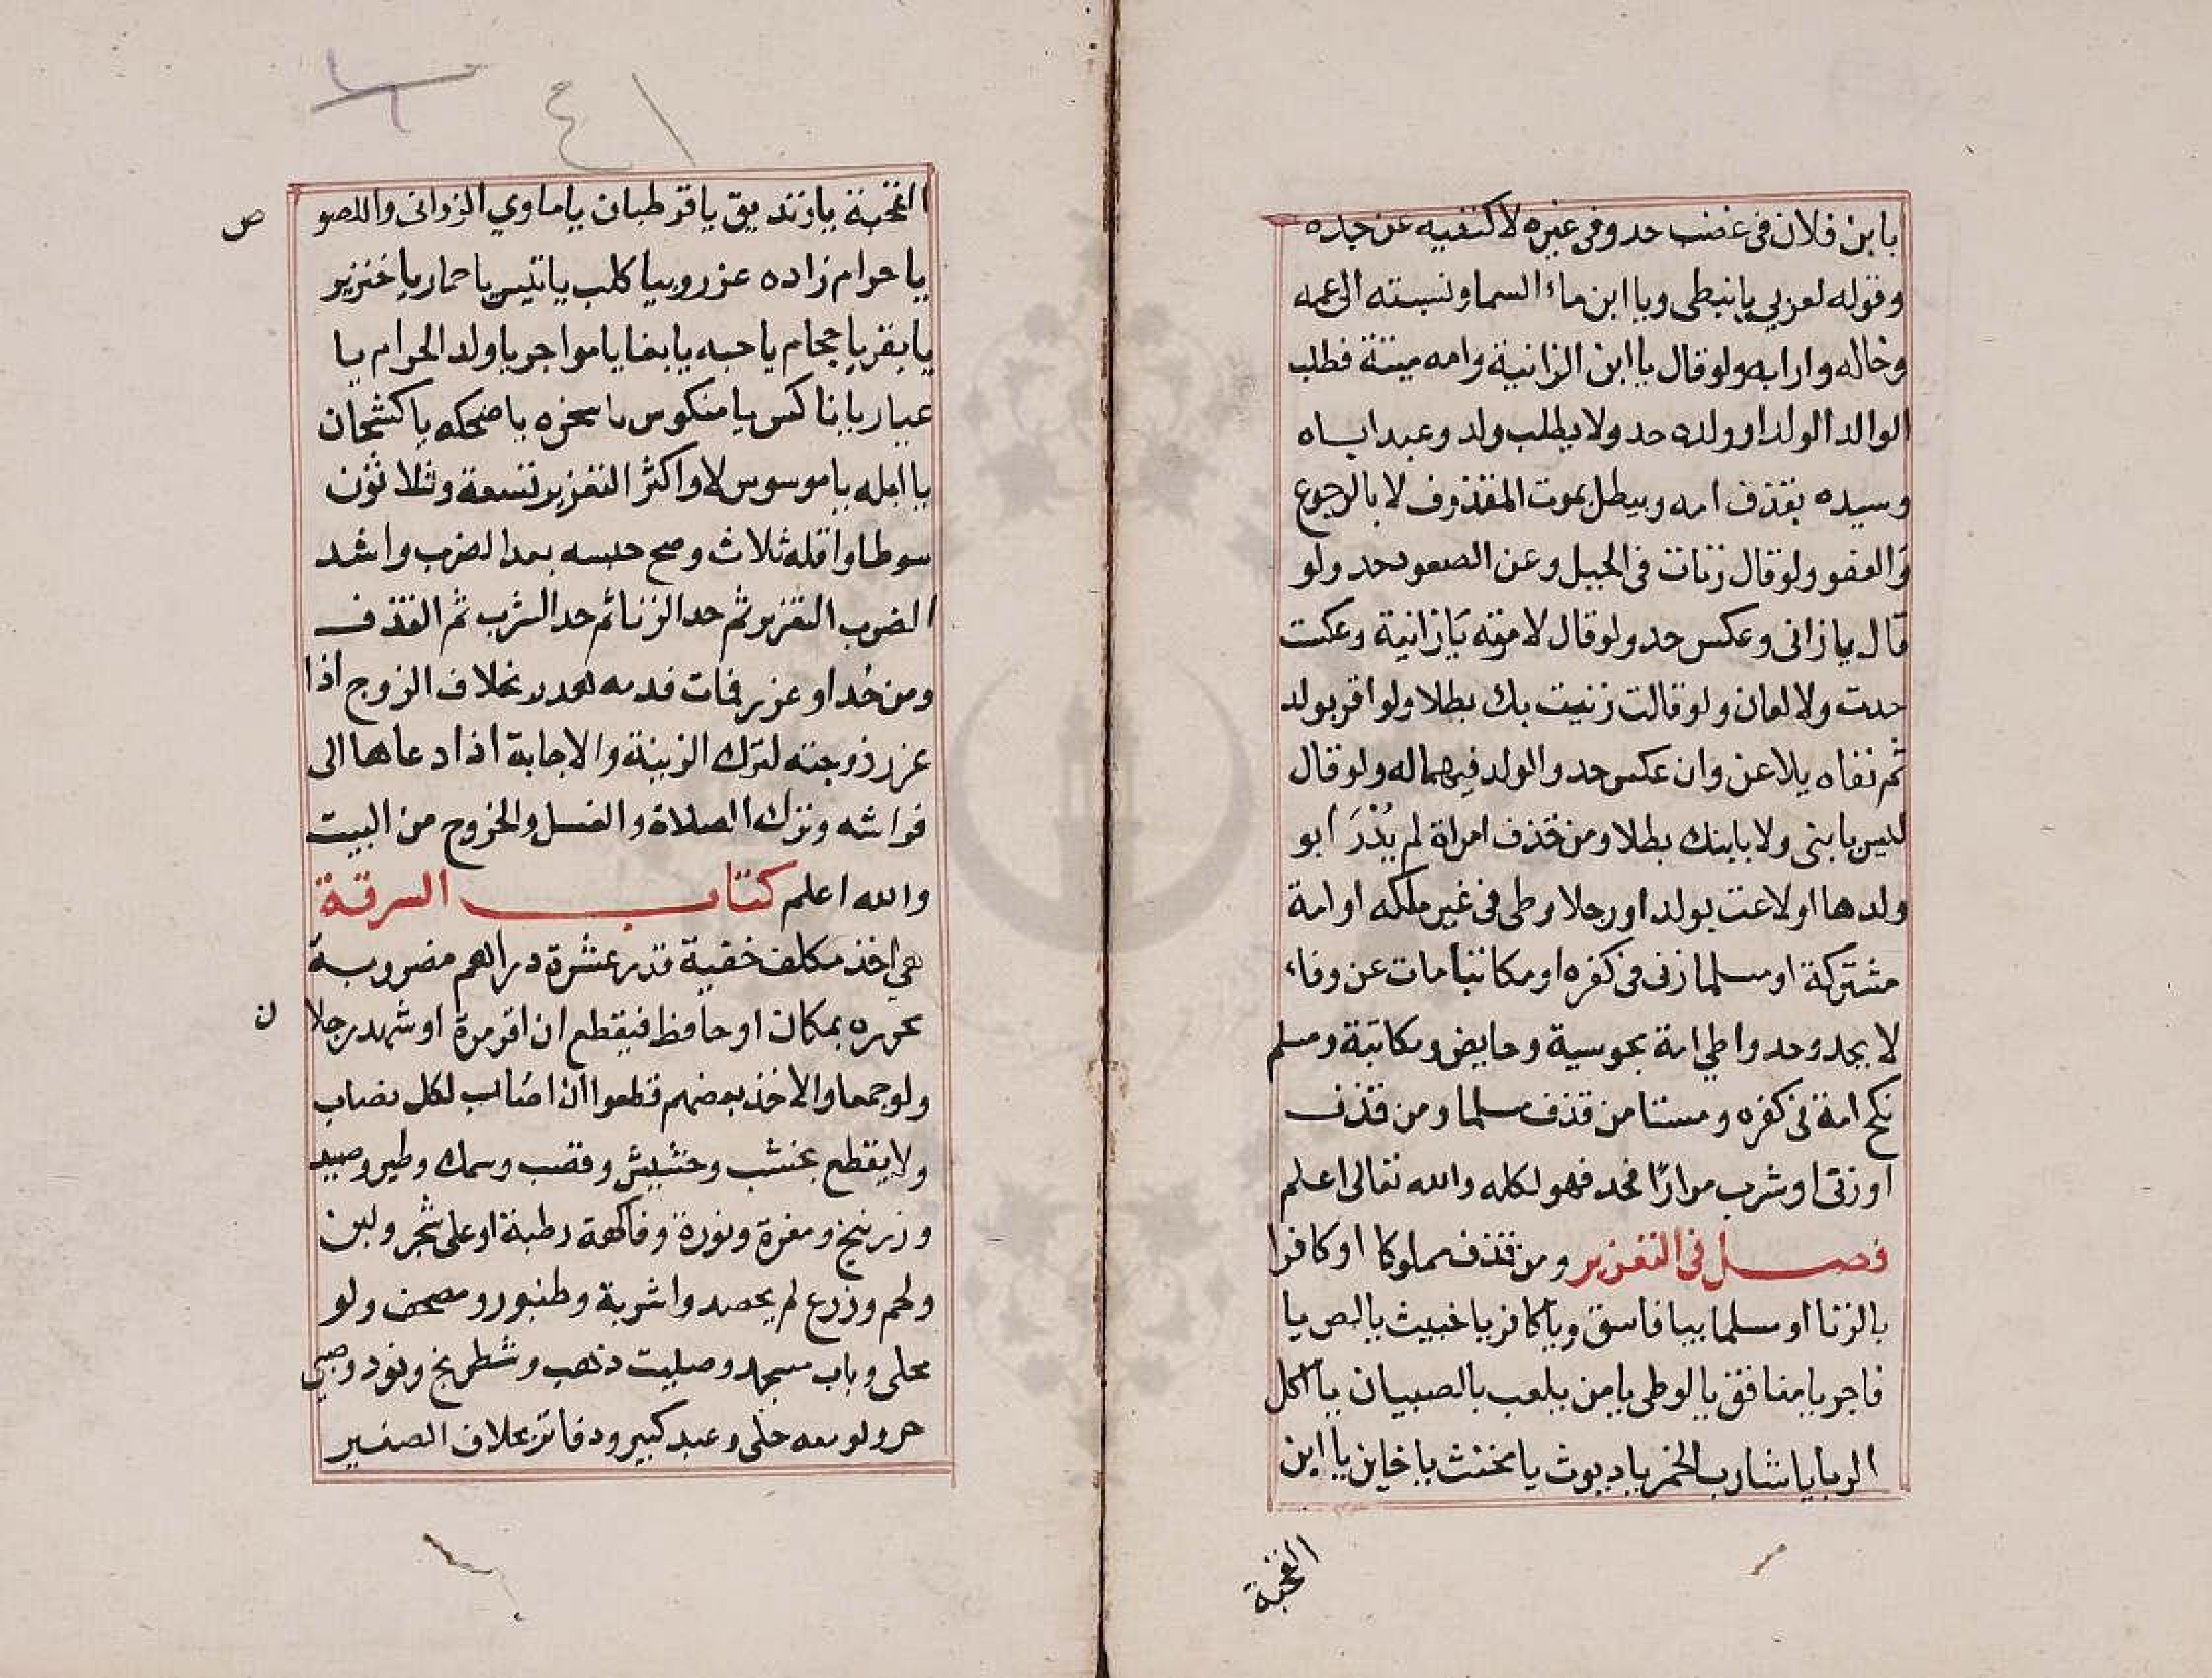 بابن فلان فى غضب حد وفى غيره لا كنفيه عن جده
وقوله لعربي يا نبطى ويا ابن ماء السما ونسبته الى عمه
وخاله ورابه ولو قال يا ابن الزانية وامه ميتة فطلب
الوالد الولد او ولده حد ولا يطلب ولد وعبد اباه
وسيده بقذف امه ويبطل بموت المقذوف لا بالرجوع
والعفو ولو قال زنات فى الجبل وعن الصعود حد ولو
قال يا زانى وعكس حد ولو قال لامرته يا زانية وعكست
حدت ولا لعان ولو قالت زنيت بك بطلا ولو اقر بولد
ثم نفاه يلاعن وان عكس حد والولد فيهما له ولو قال
ليس بابنى ولا بابنك بطلا ومن قذف امراة لم يُدْرَ ابو
ولدها او لاعنت بولد او رجلا وطى فى غير ملكه او امة
مشتركة او مسلما زنى فى كفره او مكاتبا مات عن وفاء
لا يحد وحد واطي امة مجوسية وحايض ومكاتبة ومسلم
نكح امة فى كفره ومستامن قذف مسلما ومن قذف
او زنى او شرب مرارًا فحد فهو لكله والله تعالى اعلم
فصل فى التعزير ومن قذف مملوكا او كافرا
بالزنا او مسلما بيا فاسق ويا كافر يا خبيث يا لص يا
فاجر يا منافق يا لوطى يا من يلعب بالصبيان يا اكل
الربا يا شارب الخمر يا ديوث يا مخنث يا خاين يا ابن
القحبة
٤١
القحبة يا زنديق يا قرطبان يا ماوي الزوانى واللصو
ص
يا حرام زاده عزر وبيا كلب يا تيس يا حمار يا خنزير
يا بقر يا حجام يا حيه يا بغا يا مواجر يا ولد الحرام يا
عيار يا ناكس يا منكوس يا سخره يا ضحكه يا كشحان
يا ابله يا موسوس لا واكثر التعزير تسعة وثلاثون
سوطا واقله ثلاث وصح حبسه بعد الضرب واشد
الضرب التعزير ثم حد الزنا ثم حد الشرب ثم القذف
ومن حُد او عزر فمات فدمه هدر بخلاف الزوج اذا
عزر زوجته لترك الزينة والاجابة اذا دعاها الى
فراشه وترك الصلاة والغسل والخروج من البيت
والله اعلم كتاب السرقة
هي اخذ مكلف خفية قدر عشرة دراهم مضروبة
محرزه بمكان او حافظ فيقطع ان اقر مرة او شهد رجلا
ن
ولو جمعا والاخذ بعضهم قطعوا ان اصاب لكل نصاب
ولا يقطع بخشب وحشيش وقصب وسمك وطير وصيد
وزرنيخ ومغرة ونورة وفاكهة رطبة او على شجر ولبن
ولحم وزرع لم يحصد واشربة وطنبور ومصحف ولو
محلى وباب مسجد وصليب ذهب وشطرنج ونرد وصبي
حر ولو معه حلى وعبد كبير ودفاتر بخلاف الصغير